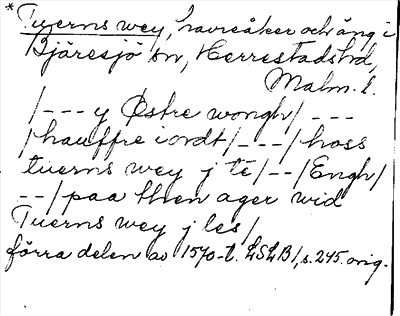 *Tuerns wey, havreåker och äng i
Bjäresjö sn, Herrestads hd,
Malm. l.
/--- y Østre wongh/ ---
/hauffre iordt/---/hoss
tuerns wey j te/--/Engh/
--/paa then ager wid
Tuerns wey j les/
förra delen av 1570-t. LSLB1, s. 245. orig.